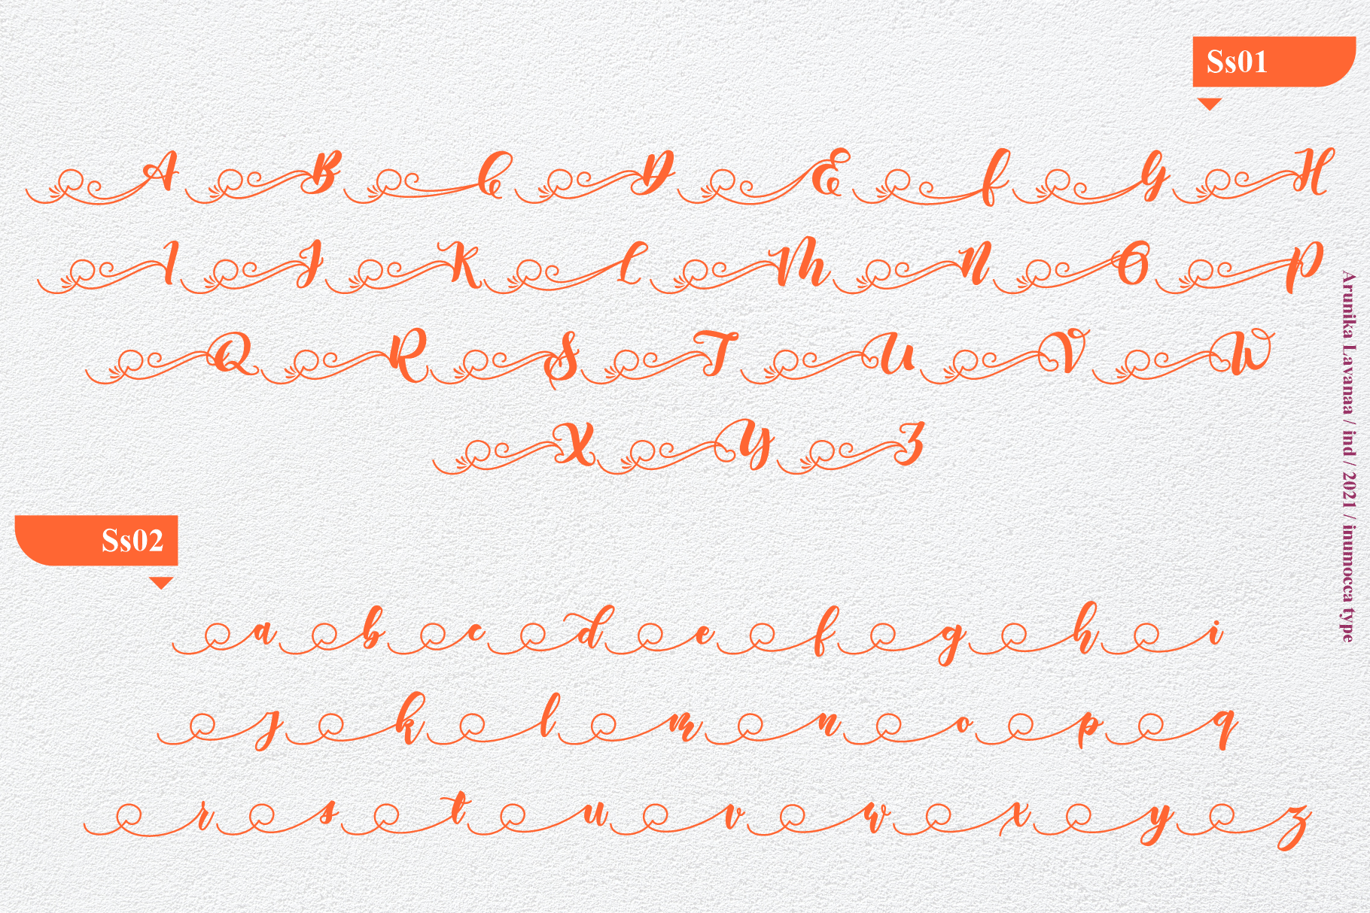 Ss01
A B C D E F G H
I J K L M N O P
Q R S T U V W
X Y Z
Arunika Lavanaa / ind / 2021 / inumocca type
Ss02
a b c d e f g h i
j k l m n o p q
r s t u v w x y z